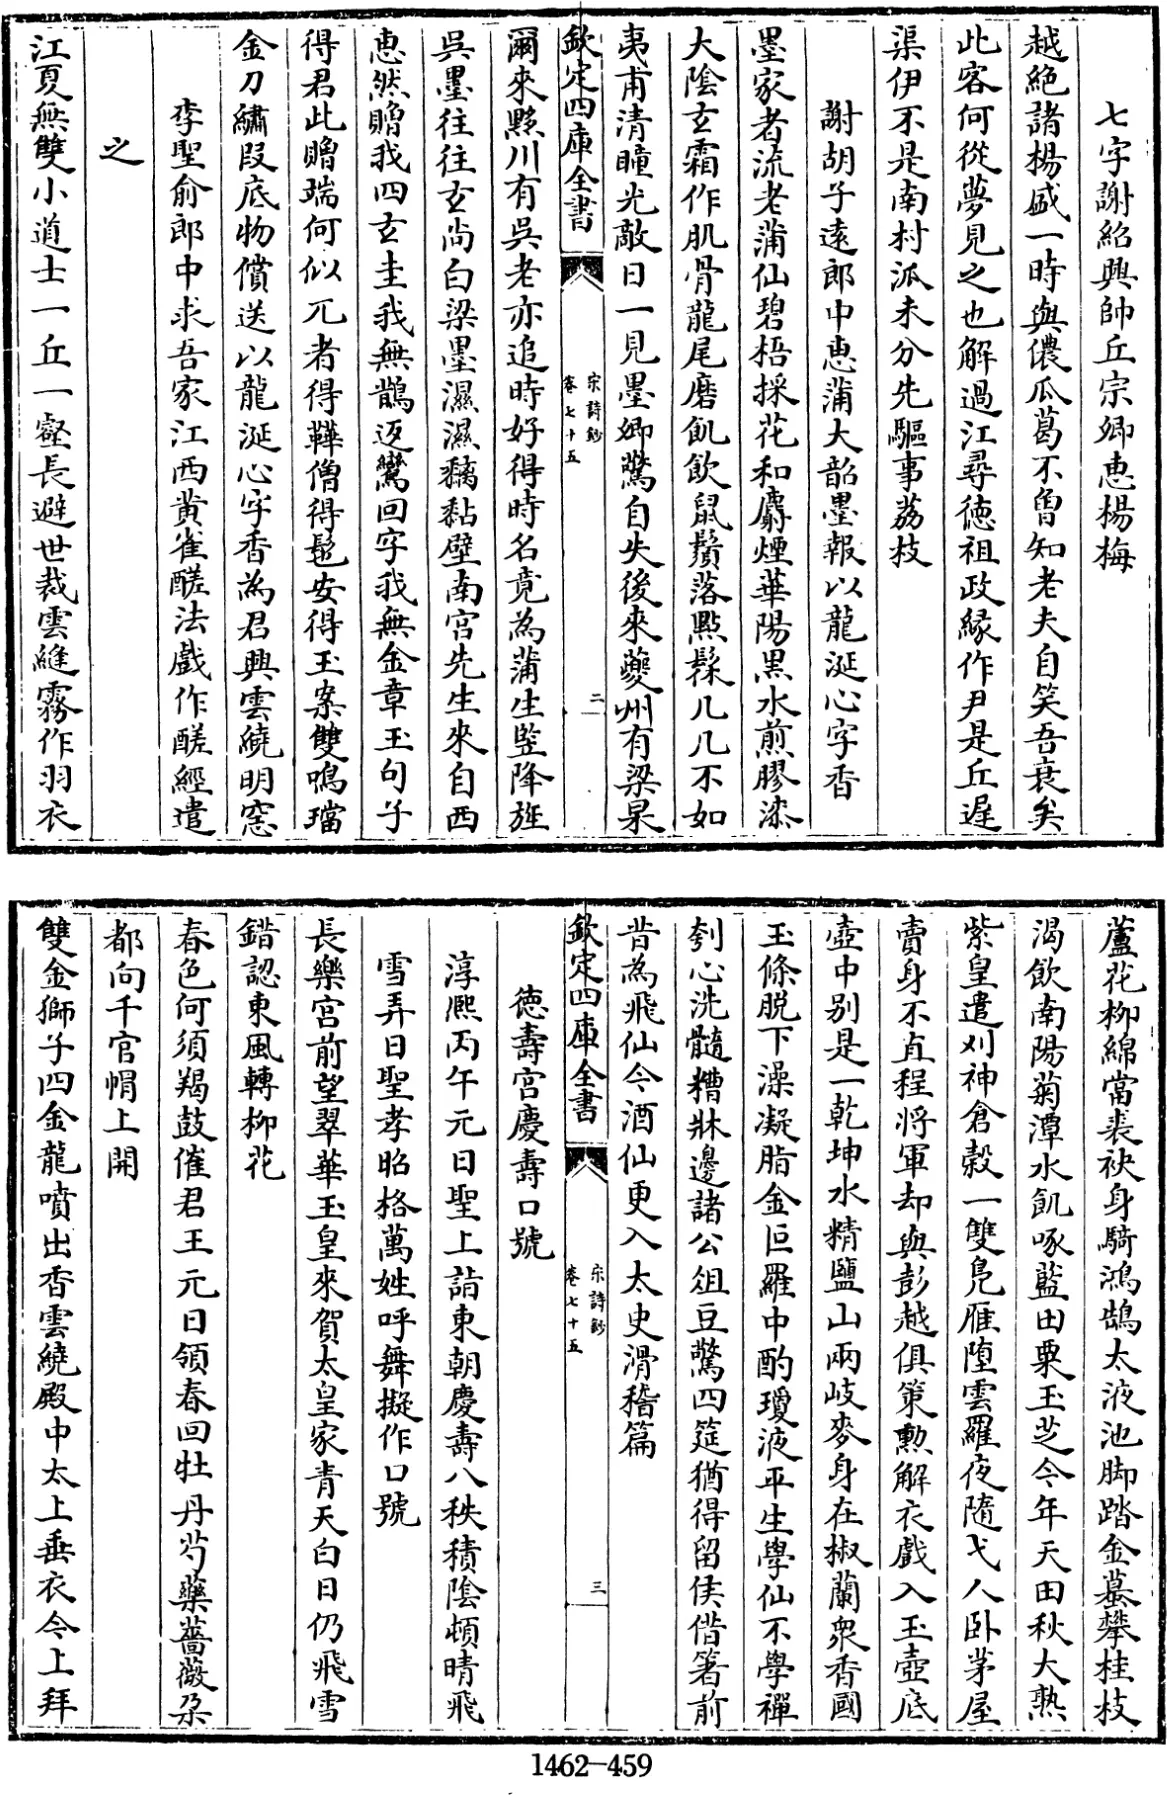 七字謝紹興帥丘宗卿惠楊梅
越絶諸楊盛一時與儂瓜葛不曾知老夫自笑吾衰矣
此客何從夢見之也解過江尋德祖政緣作尹是丘遲
渠伊不是南村派未分先驅事荔枝
謝胡子遠郎中惠蒲大韶墨報以龍涎心字香
墨家者流老蒲仙碧梧採花和麝煙華陽黒水煎膠漆
大陰玄霜作肌骨龍尾磨飢飲鼠鬚落點髹几几不如
夷甫清瞳光敵日一見墨卿驚自失後來夔州有梁杲
欽定四庫全書
宋詩鈔
卷七十五
二
爾來黟川有吳老亦追時好得時名竟為蒲生竪降旌
吳墨往往玄尚白梁墨濕濕黐黏壁南宫先生來自西
惠然贈我四玄圭我無鵲返鸞回字我無金章玉句子
得君此贈端何似兀者得鞾僧得髢安得玉案雙鳴璫
金刀繡段底物償送以龍涎心字香為君興雲繞明窓
李聖俞郎中求吾家江西黄雀醝法戲作醝經遺
之
江夏無雙小道士一丘一壑長避世裁雲縫霧作羽衣
蘆花柳綿當裘袂身騎鴻鵠太液池脚踏金蟇攀桂枝
渴飲南陽菊潭水飢啄藍田粟玉芝今年天田秋大熟
紫皇遣刈神倉榖一雙鳬雁墮雲羅夜隨弋人卧茅屋
賣身不直程將軍却與彭越俱策勲解衣戲入玉壺底
壺中别是一乾坤水精鹽山兩岐麥身在椒蘭衆香國
玉條脱下澡凝脂金叵羅中酌瓊液平生學仙不學禪
刳心洗髓糟牀邊諸公俎豆驚四筵猶得留侯借箸前
昔為飛仙今酒仙更入太史滑稽篇
欽定四庫全書
宋詩鈔
卷七十五
三
德壽宫慶壽口號
淳熙丙午元日聖上詣東朝慶壽八秩積陰頓晴飛
雪弄日聖孝昭格萬姓呼舞擬作口號
長樂宫前望翠華玉皇來賀太皇家青天白日仍飛雪
錯認東風轉柳花
春色何須羯鼓催君王元日領春回牡丹芍藥薔薇朶
都向千官帽上開
雙金獅子四金龍噴出香雲繞殿中太上垂衣今上拜
1462-459